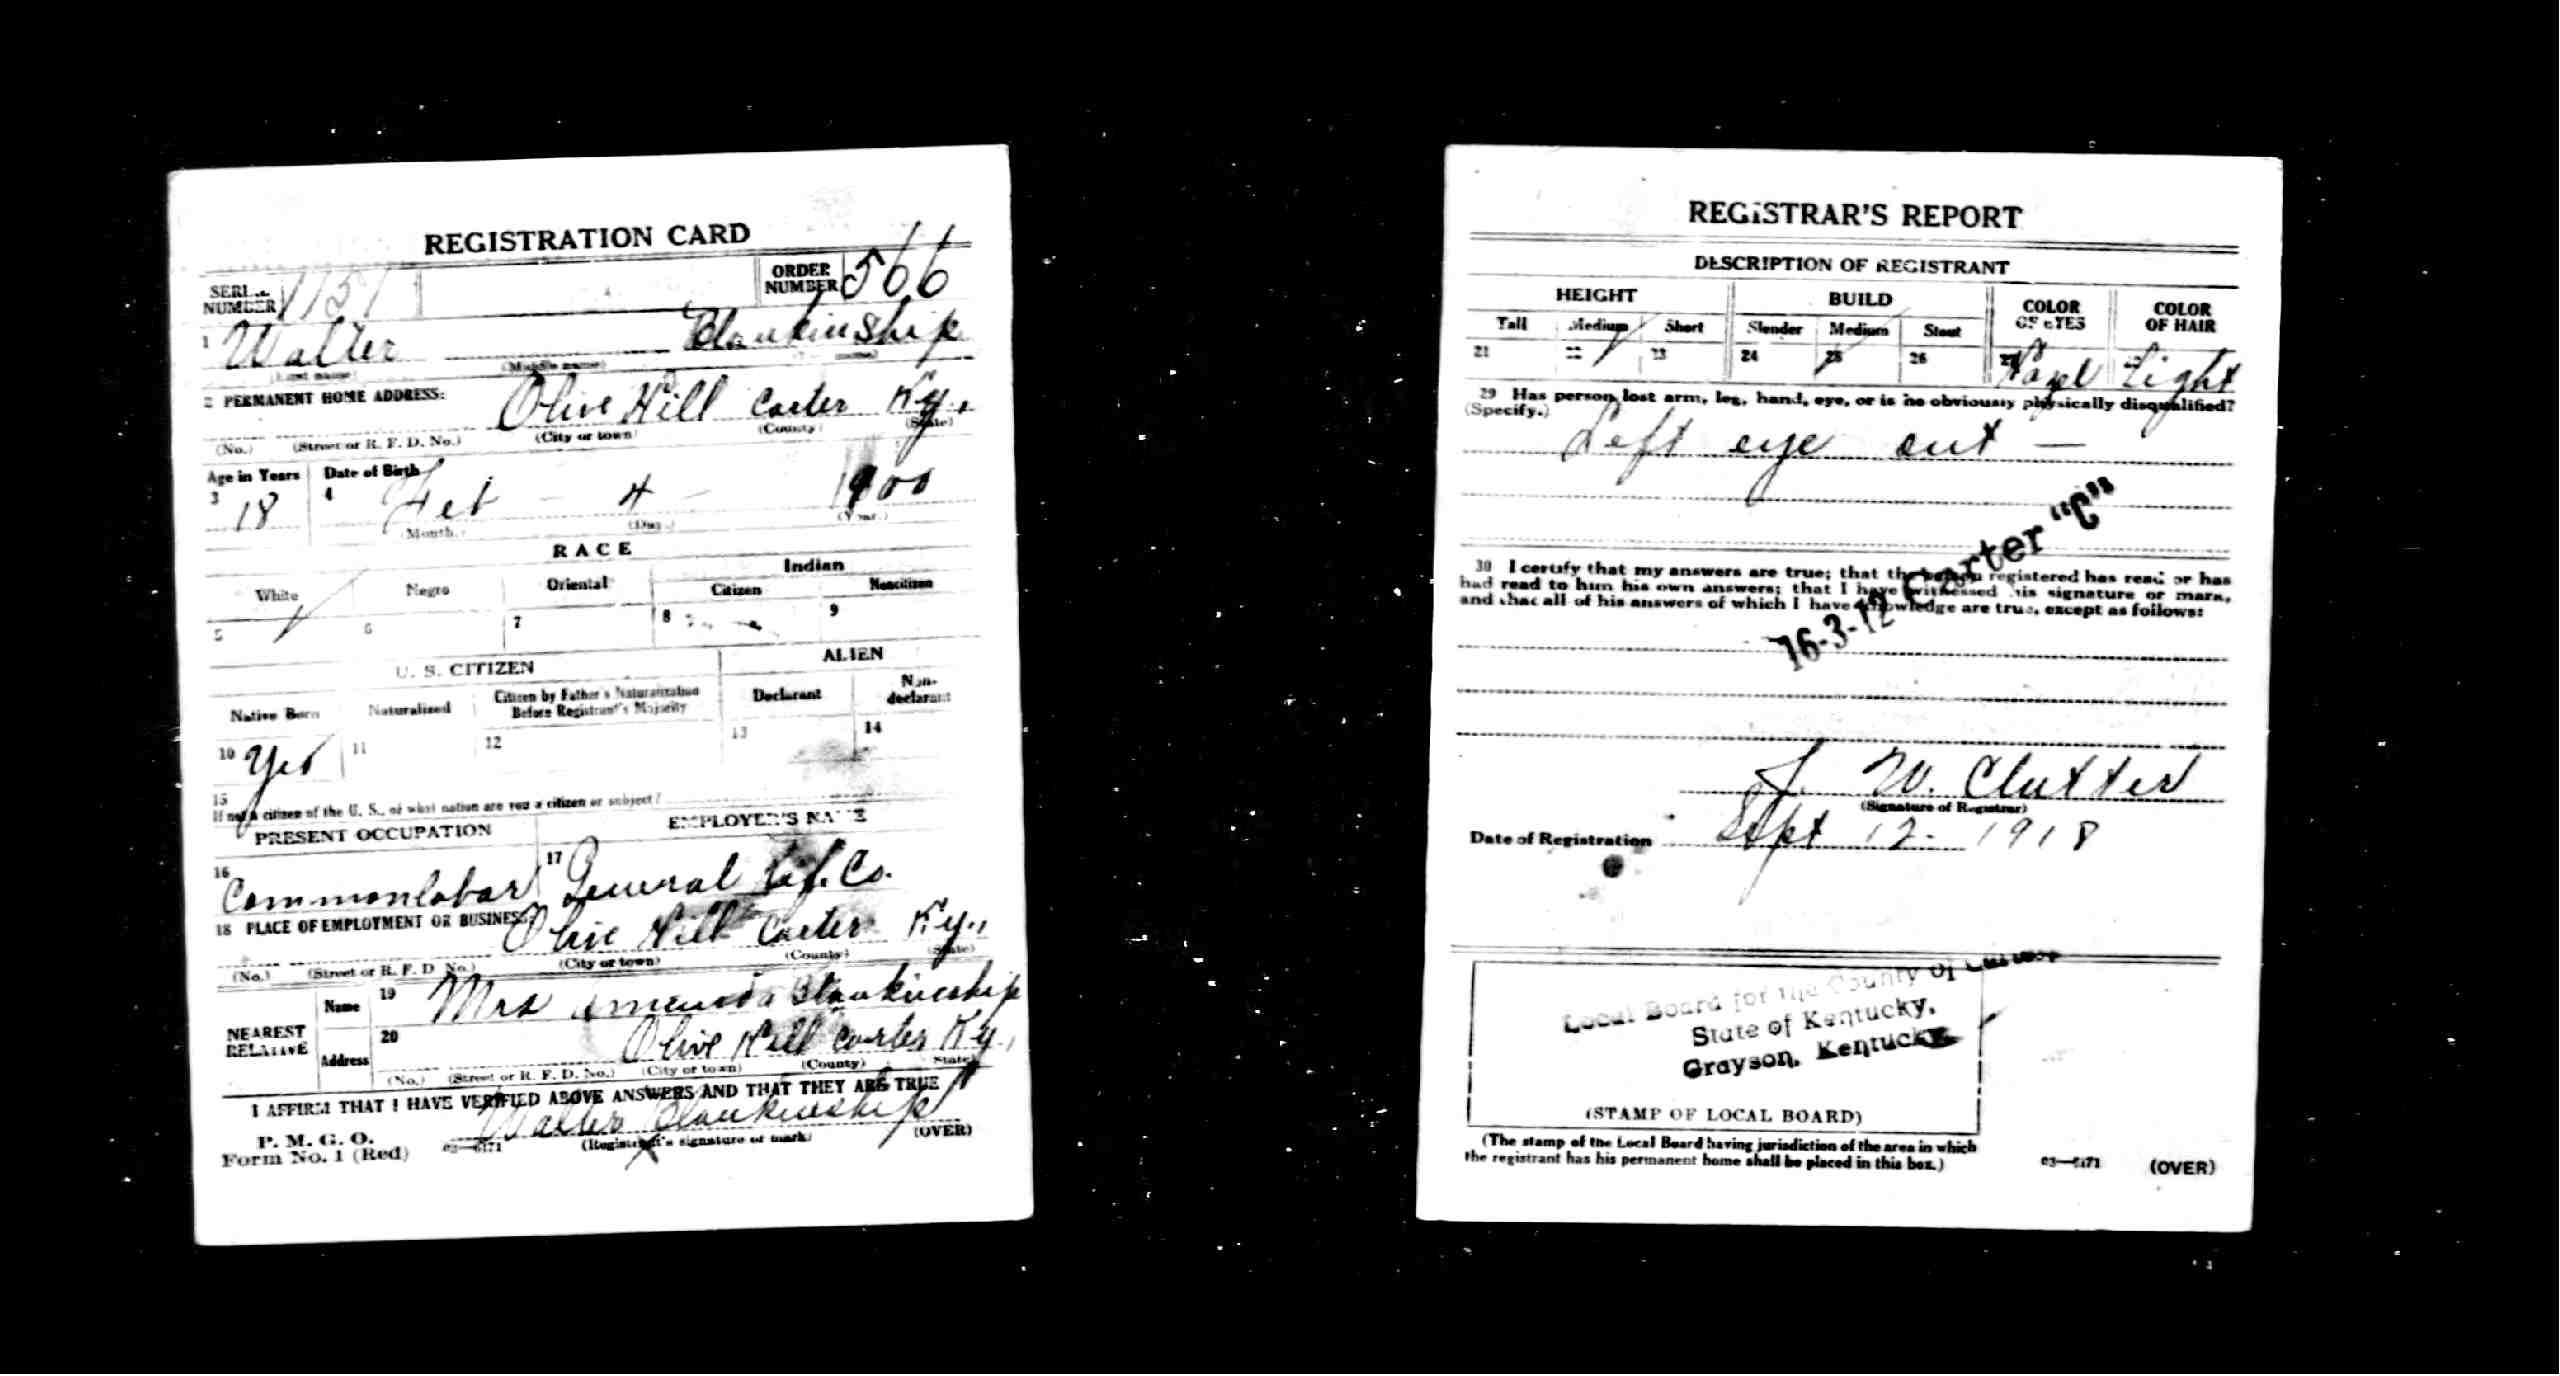 REGISTRATION CARD
SERIAL NUMBER 1151 ORDER NUMBER 566
1 Walter Blankinship
(First name) (Middle name) (name)
2 PERMANENT HOME ADDRESS:
Olive Hill Carter Ky.
(No.) (Street or R. F. D. No.) (City or town) (County) (State)
Age in Years Date of Birth
3 18 4 Feb - 4 - 1900
(Month.) (Day.) (Year.)
RACE
White Negro Oriental Indian
Citizen Noncitizen
5 6 7 8 9
U. S. CITIZEN ALIEN
Native Born Naturalized Citizen by Father's Naturalization Before Registrant's Majority Declarant Non-declarant
10 Yes 11 12 13 14
15
If not a citizen of the U. S., of what nation are you a citizen or subject?
PRESENT OCCUPATION EMPLOYER'S NAME
16 Common labor 17 General Ref. Co.
18 PLACE OF EMPLOYMENT OR BUSINESS:
Olive Hill Carter Ky.,
(No.) (Street or R. F. D. No.) (City or town) (County) (State)
NEAREST RELATIVE Name 19 Mrs Blankinship
Address 20 Olive Hill Carter Ky.,
(No.) (Street or R. F. D. No.) (City or town) (County) (State)
I AFFIRM THAT I HAVE VERIFIED ABOVE ANSWERS AND THAT THEY ARE TRUE
Walter Blankinship
P. M. G. O.
Form No. 1 (Red) 03—6171 (Registrant's signature or mark) (OVER)
REGISTRAR'S REPORT
DESCRIPTION OF REGISTRANT
HEIGHT BUILD COLOR OF EYES COLOR OF HAIR
Tall Medium Short Slender Medium Stout
21 22 23 24 25 26 27 Hazel Light
29 Has person lost arm, leg, hand, eye, or is he obviously physically disqualified?
(Specify.)
Left eye out —
16-3-12 Carter "C"
30 I certify that my answers are true; that the person registered has read or has
had read to him his own answers; that I have witnessed his signature or mark,
and that all of his answers of which I have knowledge are true, except as follows:
J. W. Clutter
(Signature of Registrar)
Date of Registration Sept 12 - 1918
Local Board for the County of Carter
State of Kentucky,
Grayson, Kentucky.
(STAMP OF LOCAL BOARD)
(The stamp of the Local Board having jurisdiction of the area in which
the registrant has his permanent home shall be placed in this box.)
03—6171 (OVER)